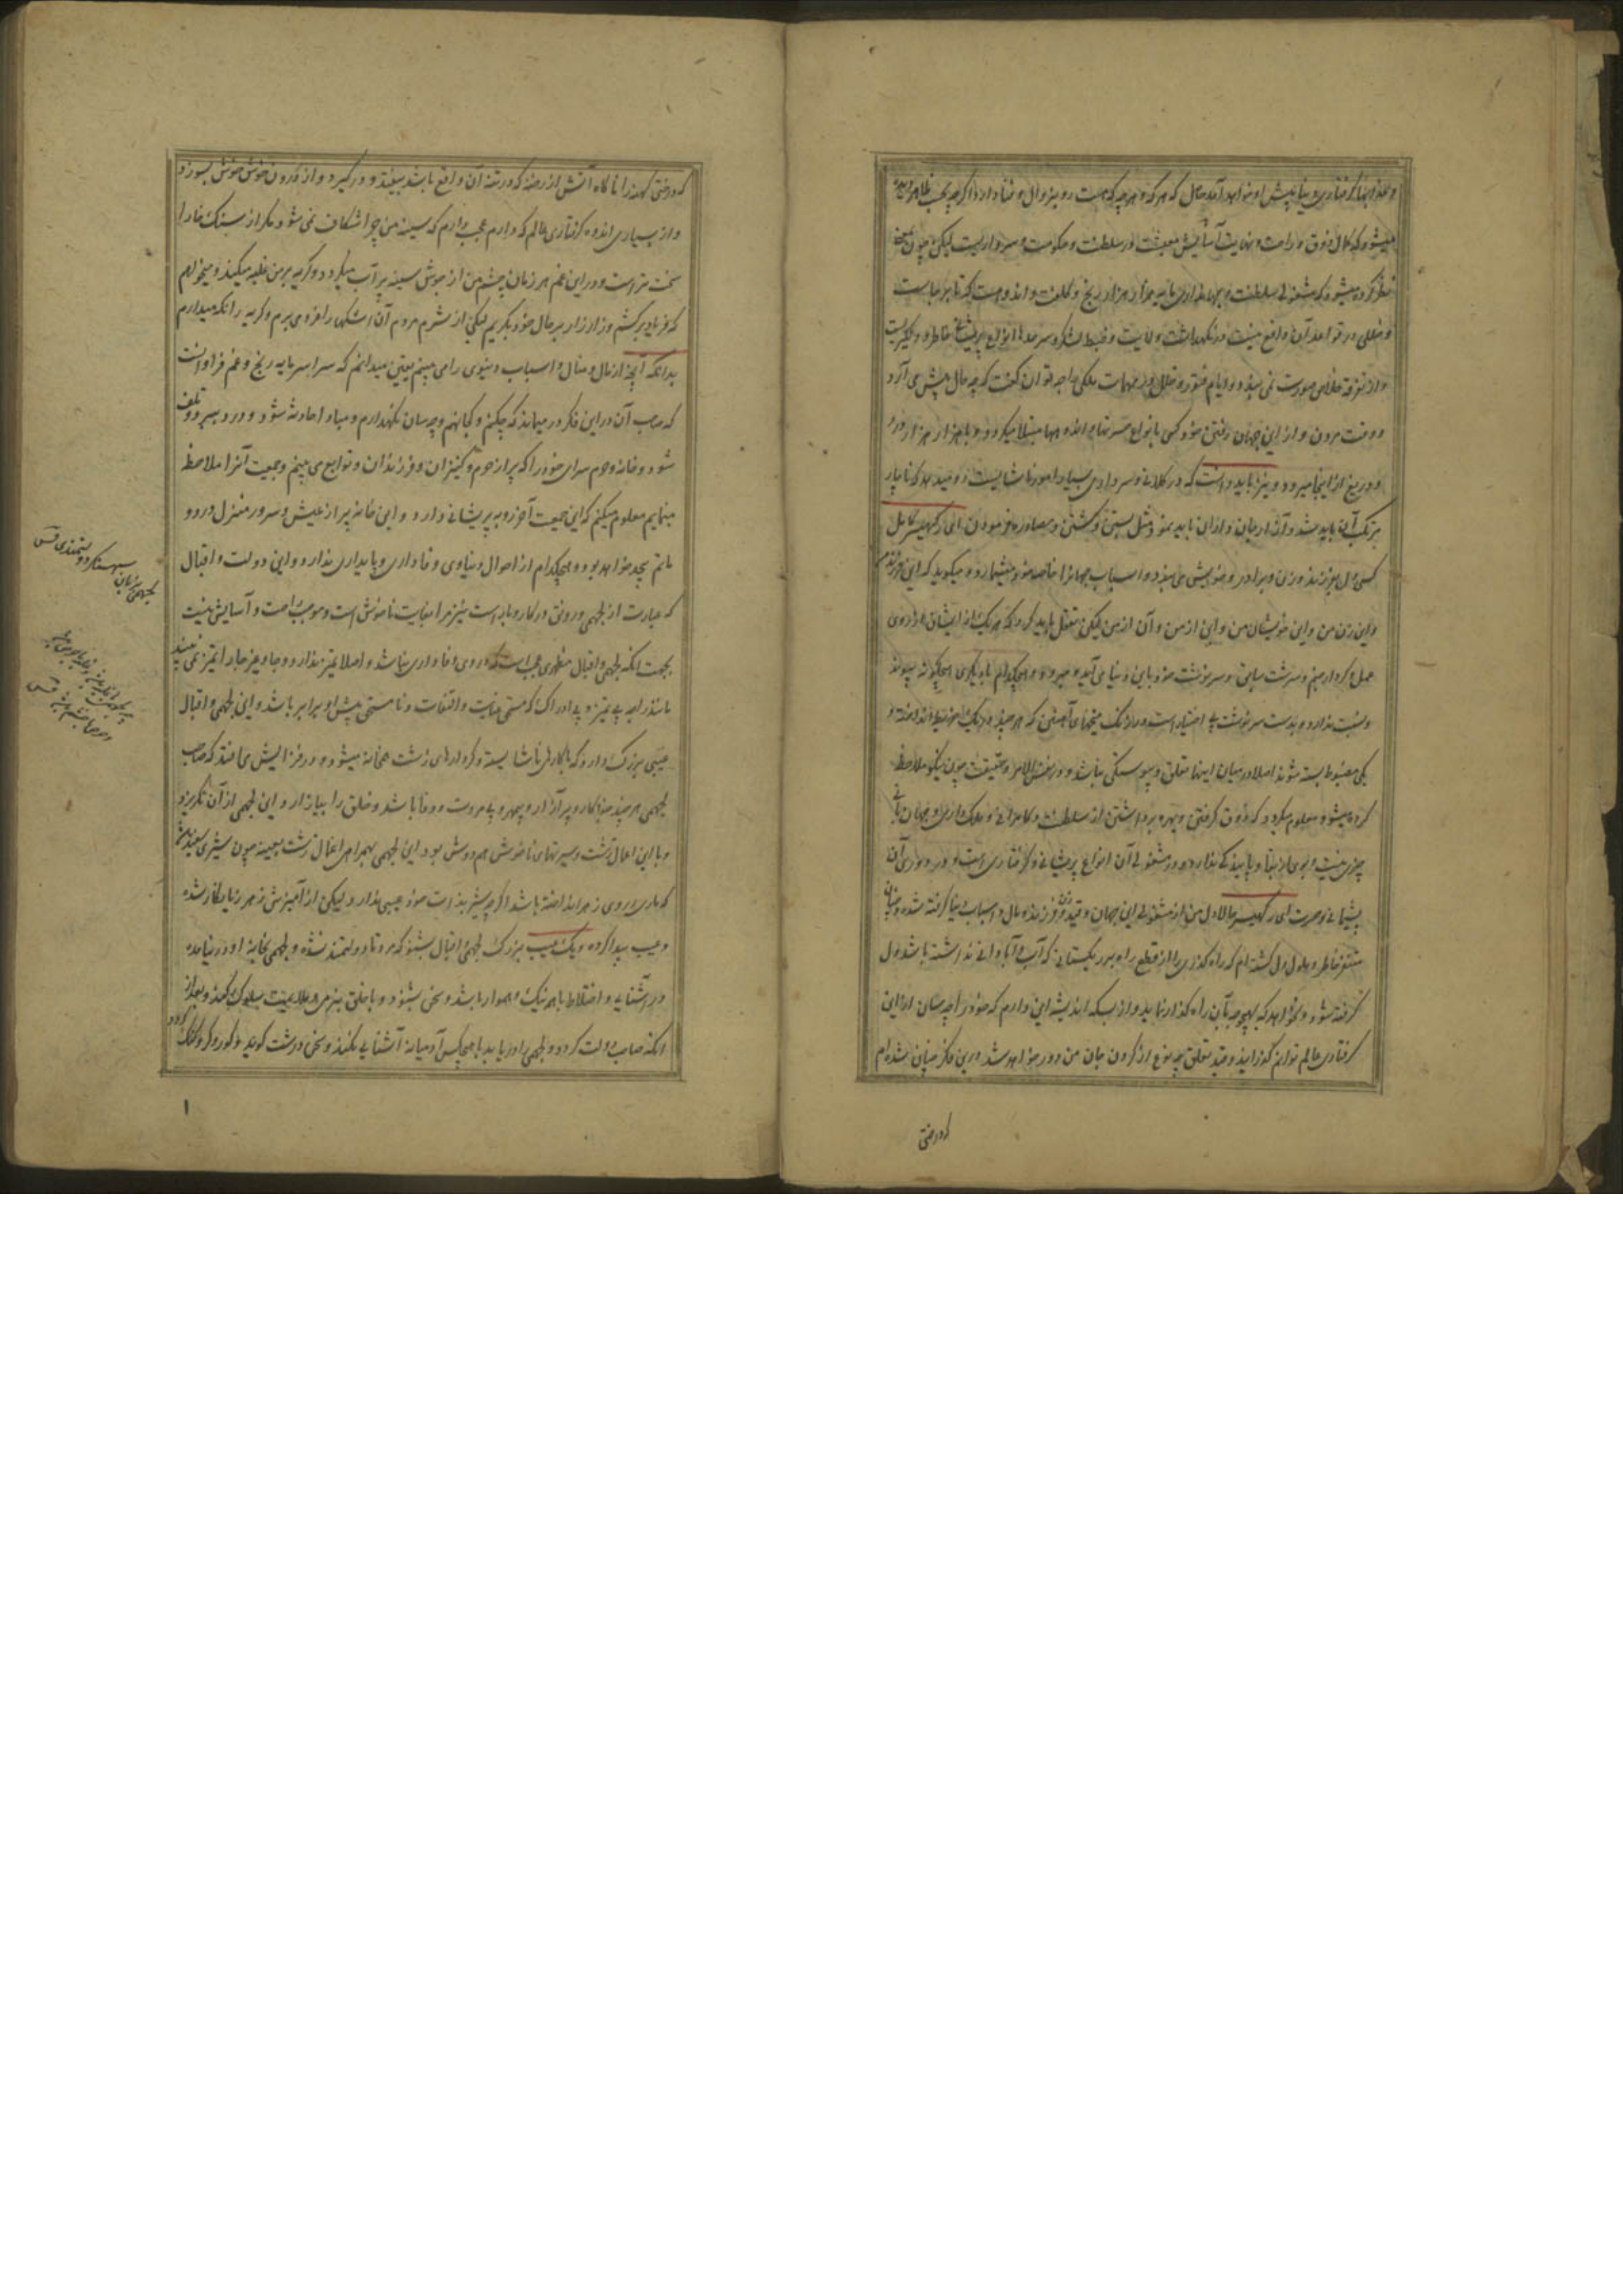 و عذابها گرفتاری دنیا پیش او خواهد آمد حال که هر که و هر چه که هست رو بزوال و فنا دارد اگر چه بحسب ظاهر دیده
میشود که کمال ذوق و راحت و نهایت آسایش معیشت در سلطنت و حکومت و سرداریست لیکن چون نیک
نظر کرده میشود که مشغولی سلطنت و جهانداری مایه هزار هزار رنج و کلفت و اندوهست که تا بر جاست
و خللی در قواعد آن واقع نیست در نگهداشت ولایت و ضبط لشکر و سرحدها انواع پریشانی خاطر و دیگریست
و از تفرقه خلاصی صورت نمی بندد و در ایام فتور و خلل در مهمات ملکی خود چه توان گفت که چه حال پیش می آرد
و وقت مردن و از این جهان رفتن خود کسی بانواع حسرتها و اندوهها مبتلا میگردد و با هزار هزار درد
و دریغ از اینجا میرود و نیز باید دانست که در کلانی و سرداری بسیار امور ناشایست رو میدهد که ناچار
مرتکب آن باید شد و آزار جان و ازان باید نمود مثل بستن و کشتن و مصادره فرمودن ای رکهیسر کامل
کسی دل بفرزند و زن و برادر و خویش می بندد و اسباب جهانرا خاصه خود میشمارد و میگوید که این فرزند من
و این زن من و این خویشان من و این از من و آن از من لیکن تعقل باید کرد که هر یک از ایشان از روی
عمل و کردار مبنم و سرشت سابق و سرنوشت خود باین دنیا می آید و میرود و هیچکدام با دیگری هیچگونه پیوند
و نسبت ندارد و بدست سرنوشت بی اختیار است و مانند میخهای آهنین که هر چند در یک خریطه انداخته و
یکی مضبوط بسته شوند اصلا در میان اینها تعلق و پیوستگی نباشد و در نفس الامر و حقیقت چون نیکو ملاحظه
کرده میشود معلوم میگردد که ذوق گرفتن و بهره برداشتن از سلطنت و کامرانی و ملک داری و جهان بانی
چیزی نیست و بوی از بقا و پایندگی ندارد و در مشغولی آن انواع پریشانی و گرفتاری است و در دوری آن
پشیمانی و حسرت ای رکهیسر حالا دل من از مشغولی این جهان و قید زن و فرزند و مال و اسباب دنیا گرفته شده و چنان
متنفر خاطر و ملول دل گشته ام که راه گذری را از قطع راه بر ریگستانی که آب و آبادانی نداشته باشد دل
گرفته شود و نخواهد که بهیچوجه بآن راه گذار نماید و از بسکه اندیشه این دارم که خود را چه سان ازین
گرفتاری عالم توانم گذرانید و قید تعلق بچه نوع از گردن جان من دور خواهد شد درین فکر چنان شده ام
که درختی
که درختی کهنه را ناگاه آتش از رخنه که در تنه آن واقع باشد بیفتد و در گیرد و از درون خوش خوش بسوزد
و از بسیاری اندوه گرفتاری عالم که دارم عجب دارم که سینه من چرا شکاف نمی شود مگر از سنگ خارا
سخت تر است و در این غم هر زمان چشم من از جوش سینه پر آب میگردد و گریه بر من غلبه میکند و میخواهم
که فریاد برکشم و زار زار بر حال خود بگریم لیکن از شرم مردم آن اشکها را فرو می برم و گریه را نگه میدارم
بدانکه آنچه از مال و منال و اسباب دنیوی را می بینم یقین میدانم که سراسر مایه رنج و غم فراوانست
که صاحب آن در این فکر در میماند که چکنم و کجا نهم و چه سان نگهدارم و مبادا حادثه شود و دزد ببرد و تلف
شود و خانه و حرم سرای خود را که پر از حرم و کنیزان و فرزندان و توابع می بینم و جمعیت آنرا ملاحظه
مینمایم معلوم میکنم که این جمعیت آخر رو به پریشانی دارد و این خانه پر از عیش و سرور منزل درد و
ماتم بچه خواهد بود و هیچکدام از احوال دنیاوی وفاداری و پایداری ندارد و این دولت و اقبال
که عبارت از لچهمی و رونق در کار و بار است نیز مرا بغایت ناخوش است و موجب راحت و آسایش نیست
بجهت آنکه لچهمی و اقبال مظهری عجب است که در وی وفاداری نباشد و اصلا تمیز ندارد و جا و غیر جا را تمیز نمی نماید
مانند راجه بی تمیز و بی ادراک که مستحق عنایت و التفات و نامستحق پیش او برابر باشد و این لچهمی و اقبال
عیبی بزرگ دارد که با کارهای ناشایسته و کردارهای زشت همخانه میشود و در فزایش می افتد که صاحب
لچهمی هر چند جفاکار و پر آزار و بیمهر و بی مروت و وفا باشد و خلق را بیازارد این لچهمی از آن نگریزد
و با این اعمال زشت و سیرتهای ناخوش هم دوش بود این لچهمی بهمراهی اعمال زشت بعینه چون شیری سفید باشد
که ماری بر وی زهر انداخته باشد اگر چه شیر بذات خود عیبی ندارد لیکن از آمیزش زهر زیانکار شده
و عیب پیدا کرده و یک عیب بزرگ لچهمی و اقبال بشنو که مرد تا دولتمند نشده و لچهمی بخانه او در نیامده
در آشنایی و اختلاط با هر نیک و هموار باشد و سخن بشنود و با خلق بنرمی و ملایمت سلوک کند و بعد از
آنکه صاحب دولت گردد و لچهمی را دریابد با هیچکس آدمیانه آشنایی نکند و سخن درشت گوید و کور و کر و گنگ گردد